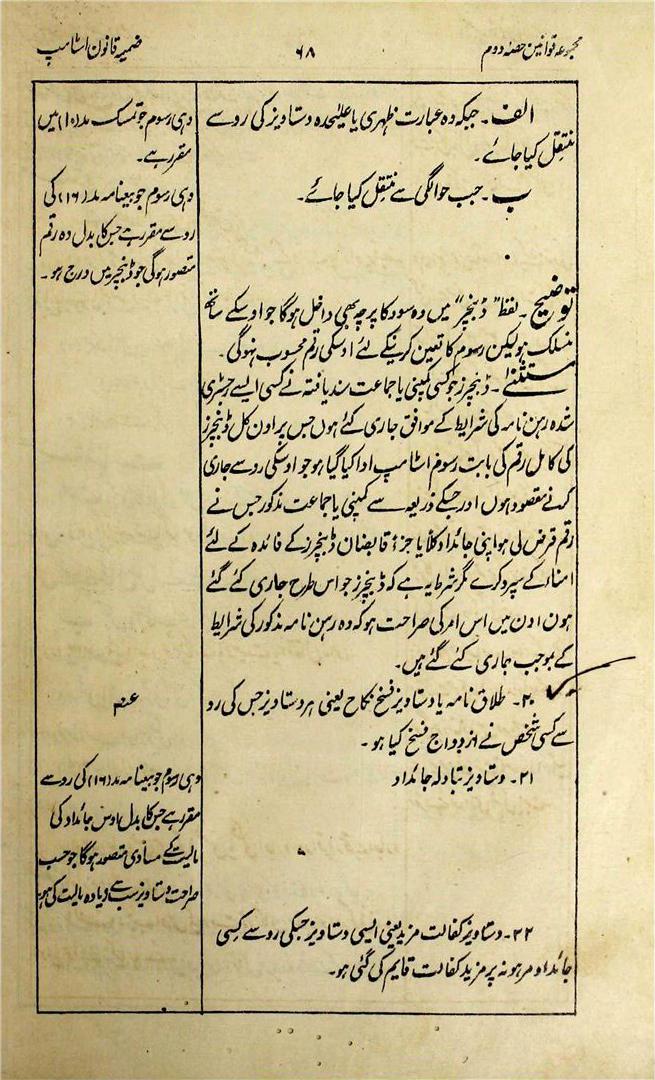 مجموعہ قوانین حصہ دوم
۶۸
ضمیمہ قانون اسٹامپ
الف۔ جبکہ وہ عبارت ظہری یا علیٰحدہ دستاویز کی روسے
منتقل کیا جائے۔
ب۔ جب حوالگی سے منتقل کیا جائے۔
توضیح۔ لفظ "ڈبنچر" میں وہ سود کا پرچہ بھی داخل ہوگا جو اوسکے ساتھ
منسلک ہو لیکن رسوم کا تعین کرنیکے لئے اوسکی رقم محسوب نہوگی۔
مستثنیٰ۔ ڈبنچرز جو کسی کمپنی یا جماعت سند یافتہ نے کسی ایسے رجسٹری
شدہ رہن نامہ کی شرایط کے موافق جاری کئے ہوں جس پر اون کل ڈبنچرز
کی کامل رقم کی بابت رسوم اسٹامپ ادا کیا گیا ہو جو اوسکی روسے جاری
کرنے مقصود ہوں اور جسکے ذریعہ سے کمپنی یا جماعت مذکور جس نے
رقم قرض لی ہو اپنی جائداد کلاً یا جزءً قابضان ڈبنچرز کے فائدہ کے لئے
امناء کے سپرد کرے مگر شرط یہ ہے کہ ڈبنچرز جو اس طرح جاری کئے گئے
ہون اون میں اس امر کی صراحت ہو کہ وہ رہن نامہ مذکور کی شرایط
کے بموجب جاری کئے گئے ہیں۔
۲۰۔ طلاق نامہ یا دستاویز فسخ نکاح یعنی ہر دستاویز جس کی رو
سے کسی شخص نے ازدواج فسخ کیا ہو۔
۲۱۔ دستاویز تبادلہ جائداد
۲۲۔ دستاویز کفالت مزید یعنی ایسی دستاویز جسکی روسے کسی
جائداد مرہونہ پر مزید کفالت قایم کی گئی ہو۔
وہی رسوم جو تمسک مد (۱۰) میں
مقرر ہے۔
وہی رسوم جو بیعنامہ مد (۱۶) کی
روسے مقرر ہے جس کا بدل وہ رقم
متصور ہوگی جو ڈبنچر میں درج ہو۔
وہی رسوم جو بیعنامہ مد (۱۶) کی روسے
مقرر ہے جس کا بدل اوس جائداد کی
مالیت کے مساوی متصور ہوگا جو حسب
صراحت دستاویز سب سے زیادہ مالیت کی ہو۔